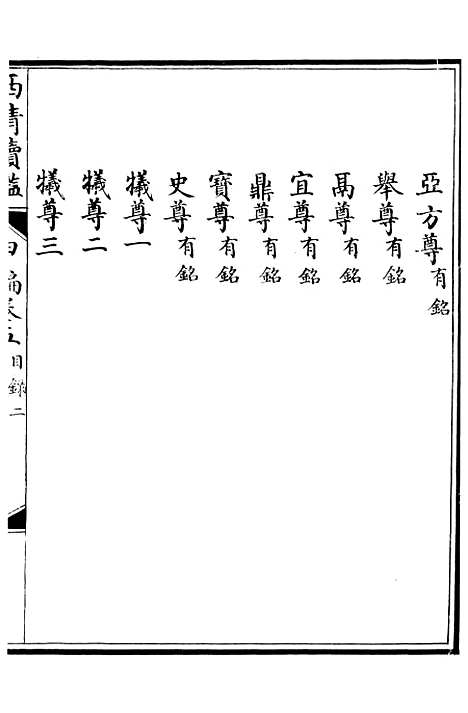 亞方尊有銘
舉尊有銘
鬲尊有銘
宜尊有銘
鼎尊有銘
寶尊有銘
史尊有銘
犧尊一
犧尊二
犧尊三
西清續鑑
甲編卷五
目錄
二